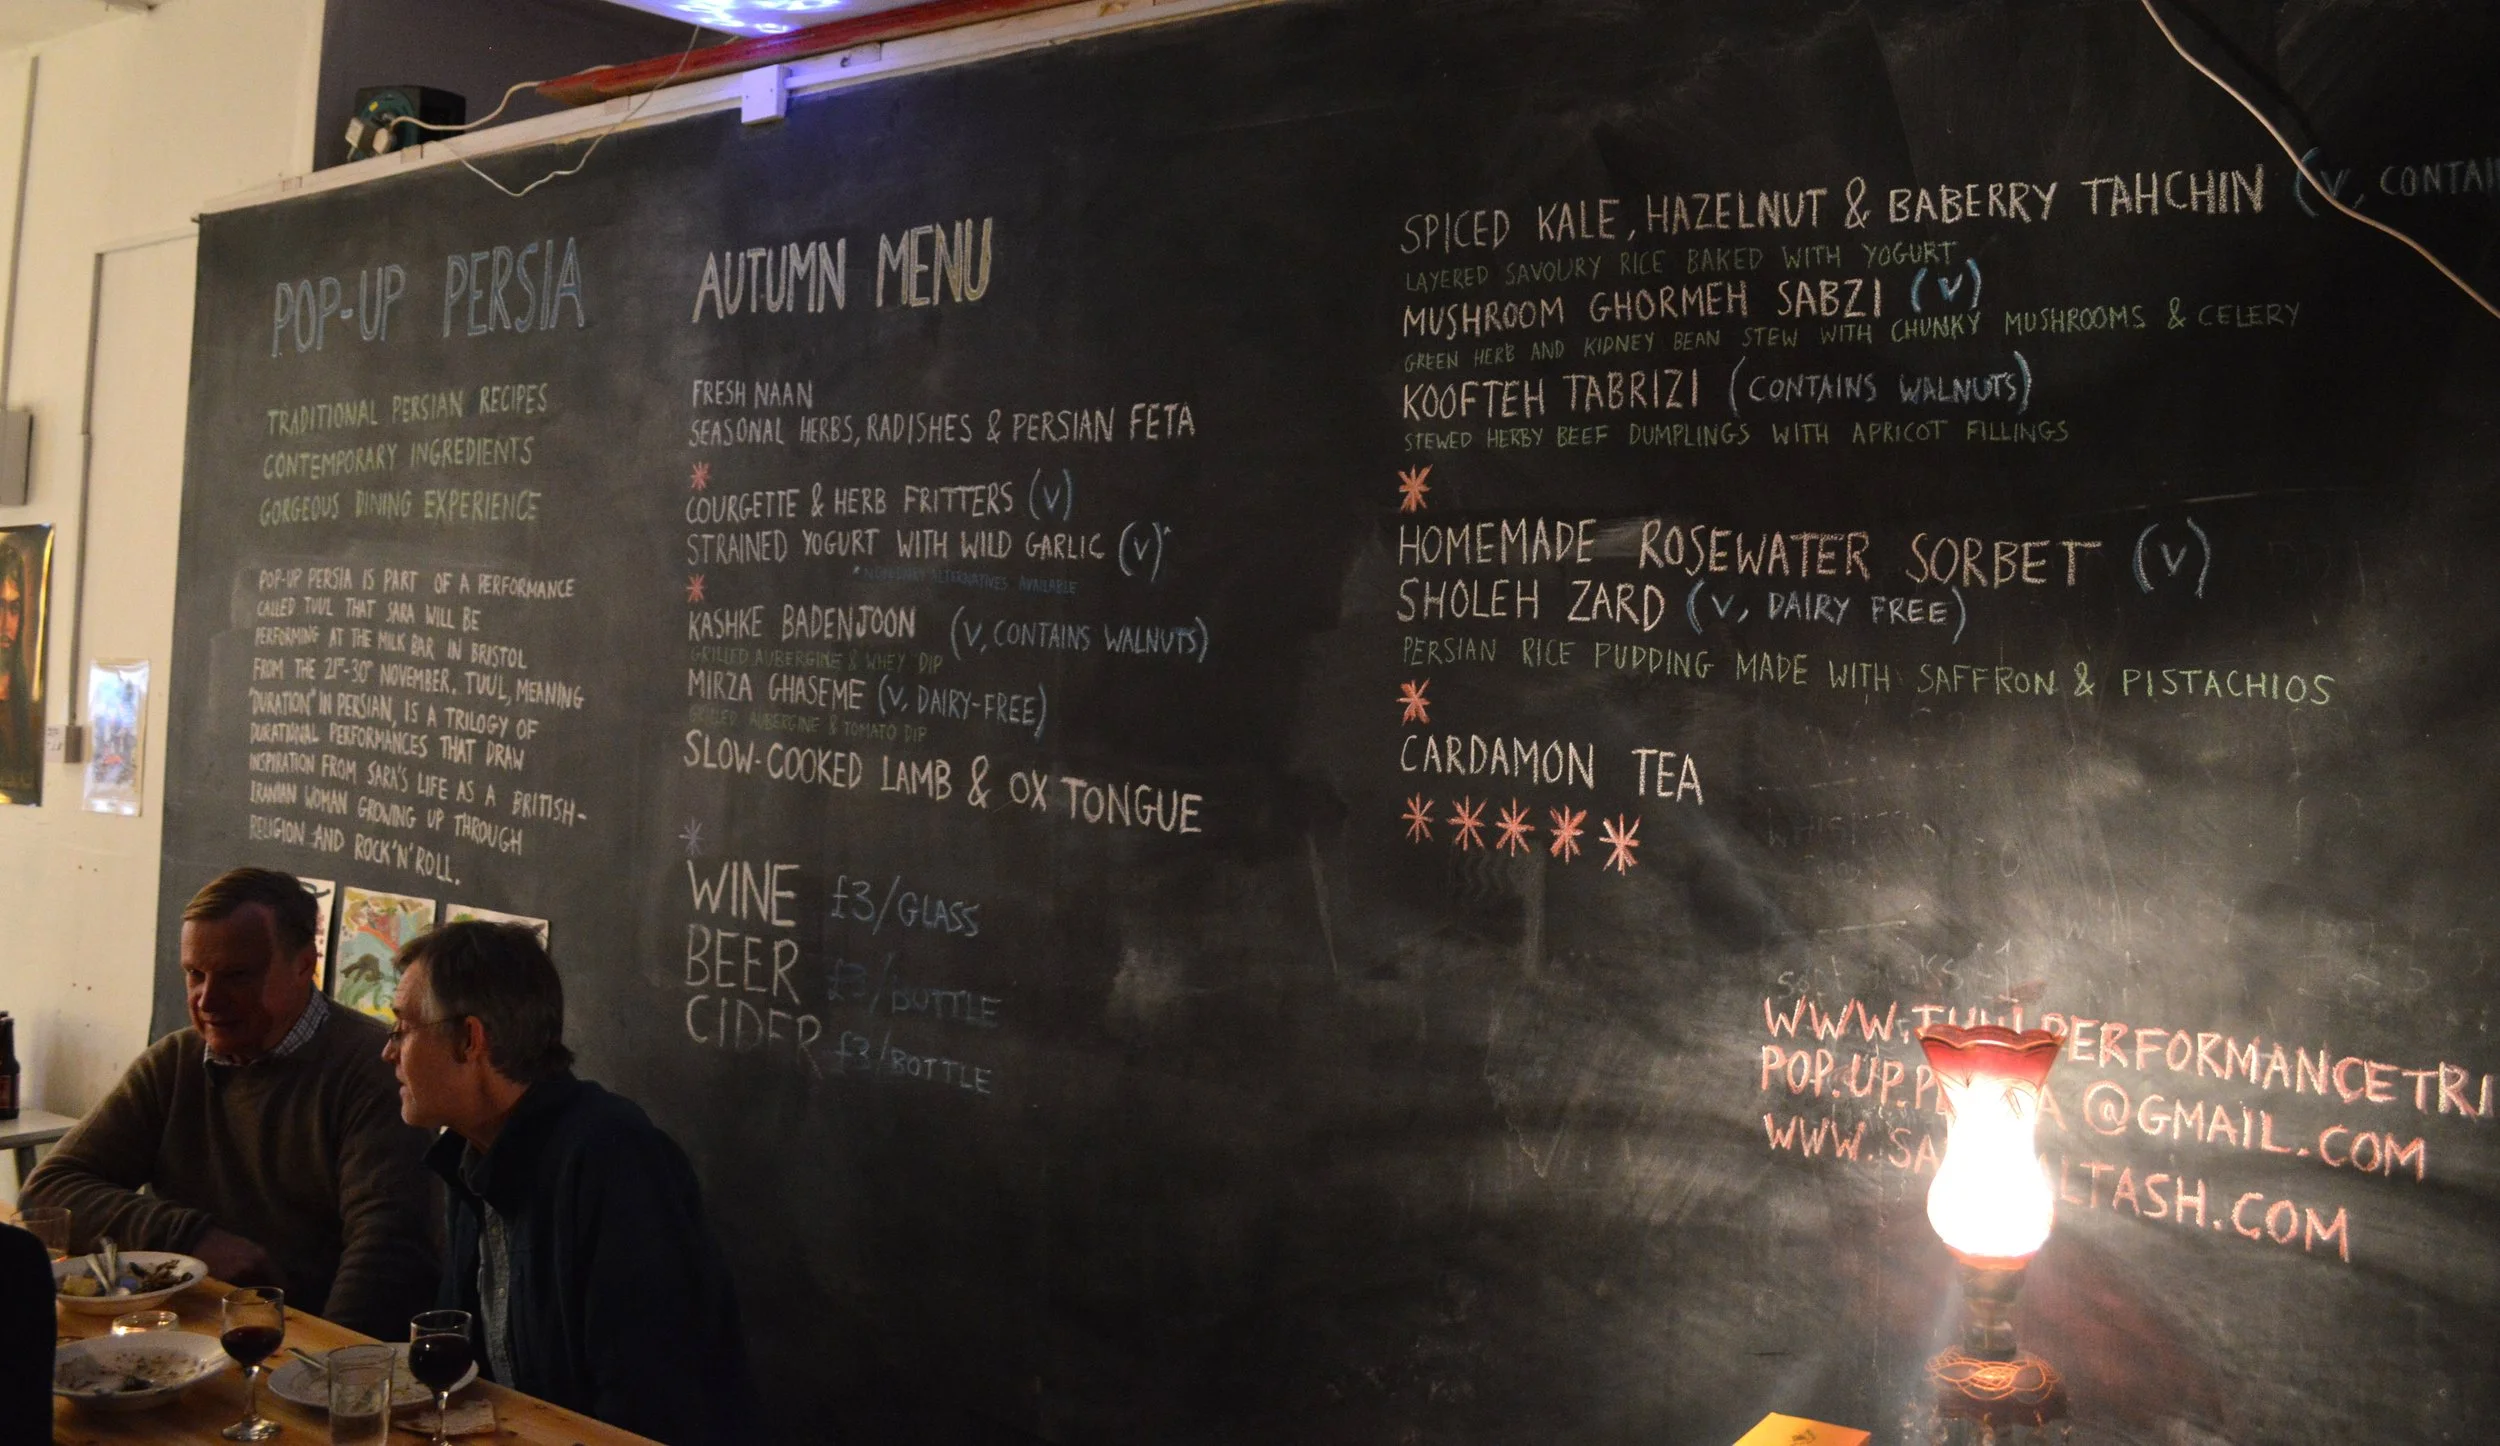 POP-UP PERSIA
TRADITIONAL PERSIAN RECIPES
CONTEMPORARY INGREDIENTS
GORGEOUS DINING EXPERIENCE
POP-UP PERSIA IS PART OF A PERFORMANCE
CALLED TUUL THAT SARA WILL BE
PERFORMING AT THE MILK BAR IN BRISTOL
FROM THE 21ST-30TH NOVEMBER. TUUL, MEANING
"DURATION" IN PERSIAN, IS A TRILOGY OF
DURATIONAL PERFORMANCES THAT DRAW
INSPIRATION FROM SARA'S LIFE AS A BRITISH-
IRANIAN WOMAN GROWING UP THROUGH
RELIGION AND ROCK'N'ROLL.
AUTUMN MENU
FRESH NAAN
SEASONAL HERBS, RADISHES & PERSIAN FETA
*
COURGETTE & HERB FRITTERS (V)
STRAINED YOGURT WITH WILD GARLIC (V)*
ALTERNATIVES AVAILABLE
*
KASHKE BADENJOON (V, CONTAINS WALNUTS)
GRILLED AUBERGINE & WHEY DIP
MIRZA GHASEME (V, DAIRY-FREE)
GRILLED AUBERGINE & TOMATO DIP
SLOW-COOKED LAMB & OX TONGUE
*
WINE £3/GLASS
BEER £3/BOTTLE
CIDER £3/BOTTLE
SPICED KALE, HAZELNUT & BABERRY TAHCHIN (V, CONTAI
LAYERED SAVOURY RICE BAKED WITH YOGURT
MUSHROOM GHORMEH SABZI (V)
GREEN HERB AND KIDNEY BEAN STEW WITH CHUNKY MUSHROOMS & CELERY
KOOFTEH TABRIZI (CONTAINS WALNUTS)
STEWED HERBY BEEF DUMPLINGS WITH APRICOT FILLINGS
*
HOMEMADE ROSEWATER SORBET (V)
SHOLEH ZARD (V, DAIRY FREE)
PERSIAN RICE PUDDING MADE WITH SAFFRON & PISTACHIOS
*
CARDAMON TEA
*****
WWW.TUULPERFORMANCETRI
POP.UP.P A @GMAIL.COM
WWW.SA ALTASH.COM